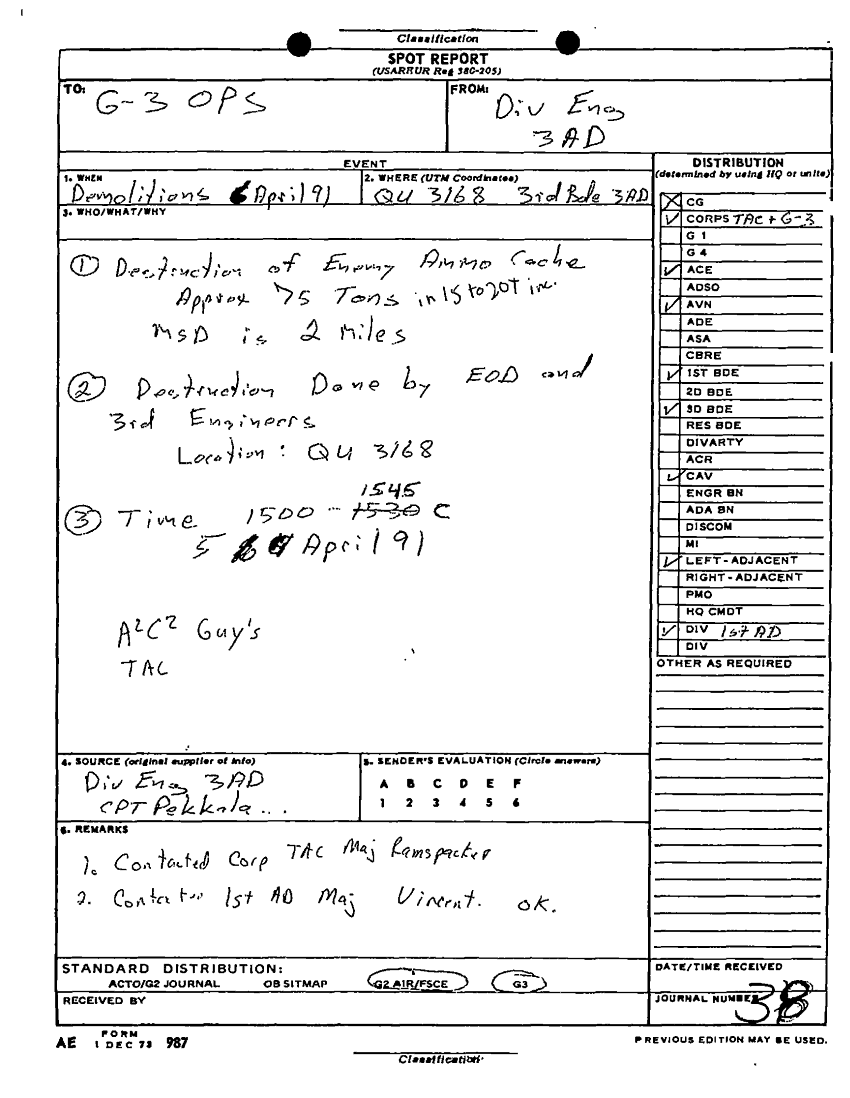 Classification
SPOT REPORT
(USARRUR Reg 380-205)
TO:
G-3 OPS
FROM:
Div Eng
3AD
EVENT
1. WHEN
Demolitions 6 April 91
2. WHERE (UTM Coordinates)
QU 3168 3rd Bde 3AD
3. WHO/WHAT/WHY
① Destruction of Enemy Ammo Cache
Approx 75 Tons in 15 to 20T inc.
MSD is 2 miles
② Destruction Done by EOD and
3rd Engineers
Location: QU 3168
1545
③ Time 1500 - 1530 C
5 April 91
A²C² Guy's
TAC
DISTRIBUTION
(determined by using HQ or units)
X CG
✓ CORPS TAC + G-3
G 1
G 4
✓ ACE
ADSO
✓ AVN
ADE
ASA
CBRE
✓ 1ST BDE
2D BDE
✓ 3D BDE
RES BDE
DIVARTY
ACR
✓ CAV
ENGR BN
ADA BN
DISCOM
MI
✓ LEFT-ADJACENT
RIGHT-ADJACENT
PMO
HQ CMDT
✓ DIV 1st AD
DIV
OTHER AS REQUIRED
4. SOURCE (original supplier of info)
Div Eng 3AD
CPT Pekkala...
5. SENDER'S EVALUATION (Circle answers)
A B C D E F
1 2 3 4 5 6
6. REMARKS
1. Contacted Corp TAC Maj Ramspacker
2. 1st AD Maj Vincent. OK.
STANDARD DISTRIBUTION:
ACTO/G2 JOURNAL OB SITMAP G2 AIR/FSCE G3
RECEIVED BY
DATE/TIME RECEIVED
JOURNAL NUMBER
38
AE FORM 1 DEC 73 987
PREVIOUS EDITION MAY BE USED.
Classification